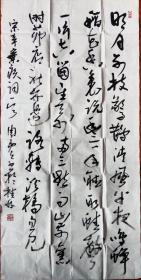 明月别枝惊鹊清风半夜鸣蝉
稻花香里说丰年听取蛙声
一片七八个星天外两三点雨山前
旧时茅店社林边路转溪桥忽见
宋辛弃疾词一首